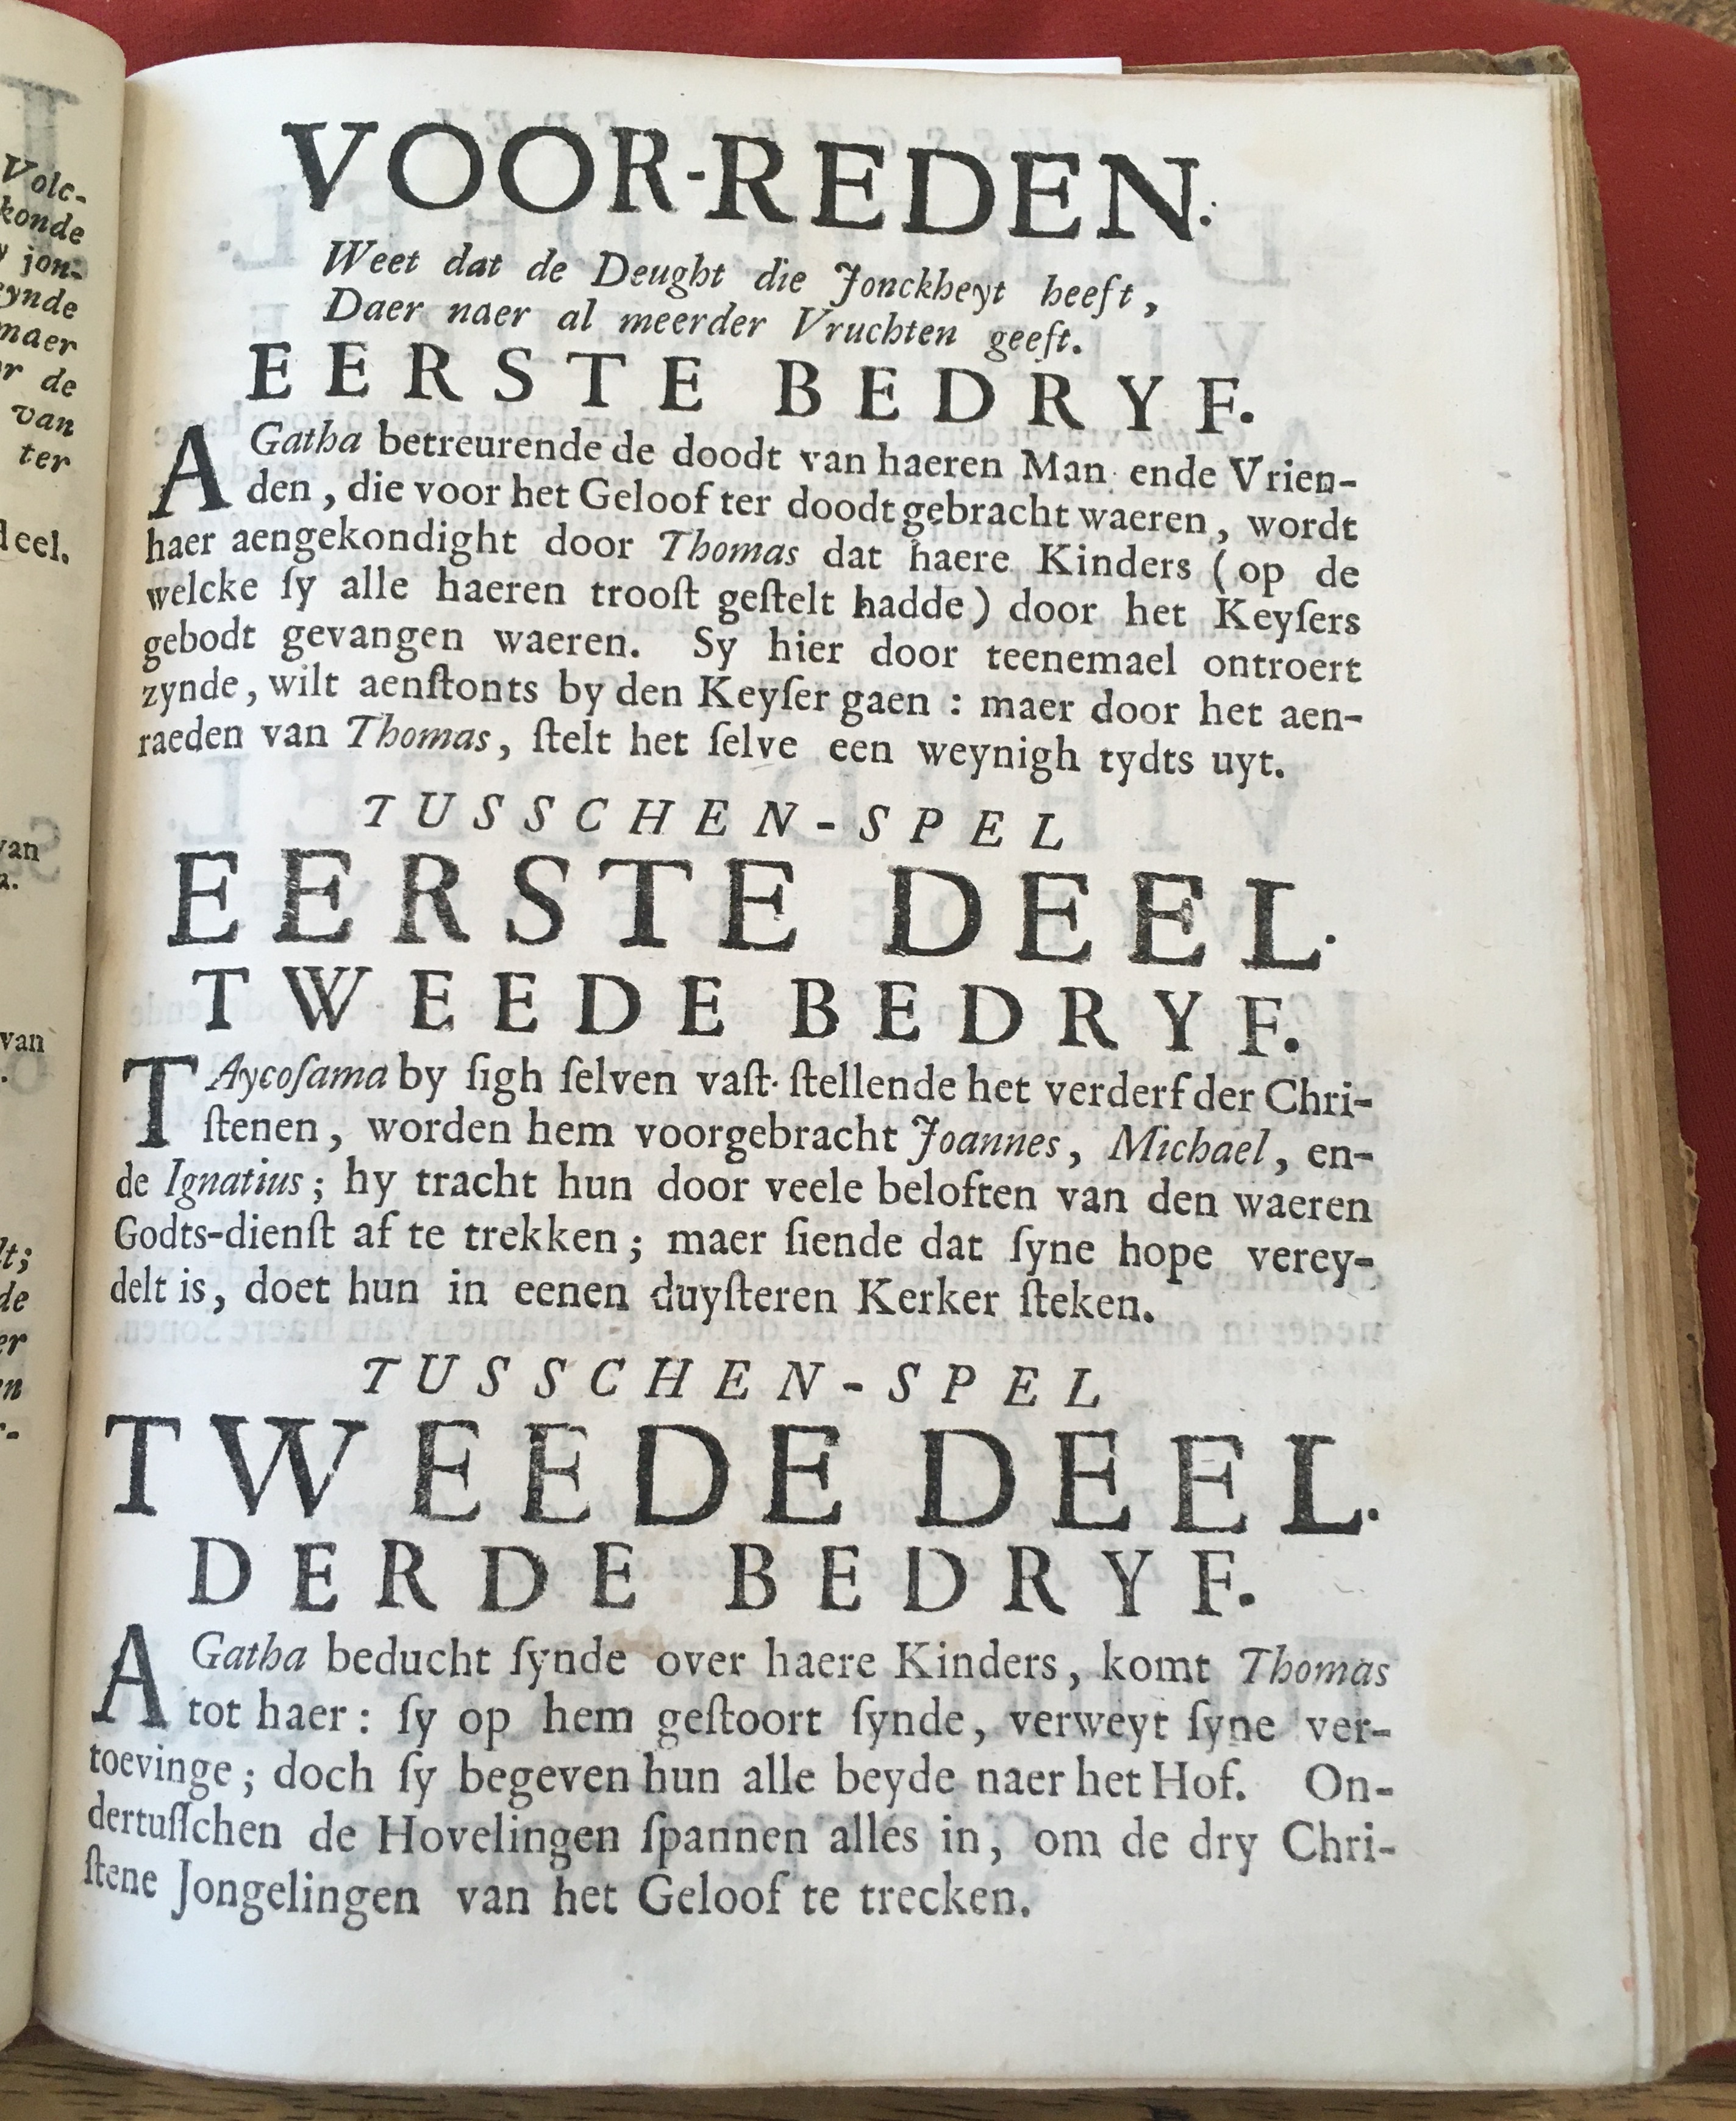 Volc-
konde
jon-
eynde
maer
de
van
ter
deel.
van
van
de
VOOR-REDEN.
Weet dat de Deught die Jonckheyt heeft,
Daer naer al meerder Vruchten geeft.
EERSTE BEDRYF.
AGatha betreurende de doodt van haeren Man ende Vrien-
den, die voor het Geloof ter doodt gebracht waeren, wordt
haer aengekondight door Thomas dat haere Kinders (op de
welcke ſy alle haeren trooſt geſtelt hadde) door het Keyſers
gebodt gevangen waeren. Sy hier door teenemael ontroert
zynde, wilt aenſtonts by den Keyſer gaen : maer door het aen-
raeden van Thomas, ſtelt het ſelve een weynigh tydts uyt.
TUSSCHEN-SPEL
EERSTE DEEL.
TWEEDE BEDRYF.
TAycoſama by ſigh ſelven vaſt ſtellende het verderf der Chri-
ſtenen, worden hem voorgebracht Joannes, Michael, en-
de Ignatius; hy tracht hun door veele beloften van den waeren
Godts-dienſt af te trekken; maer ſiende dat ſyne hope verey-
delt is, doet hun in eenen duyſteren Kerker ſteken.
TUSSCHEN-SPEL
TWEEDE DEEL.
DERDE BEDRYF.
AGatha beducht ſynde over haere Kinders, komt Thomas
tot haer : ſy op hem geſtoort ſynde, verweyt ſyne ver-
toevinge; doch ſy begeven hun alle beyde naer het Hof. On-
dertuſſchen de Hovelingen ſpannen alles in, om de dry Chri-
ſtene Jongelingen van het Geloof te trecken.